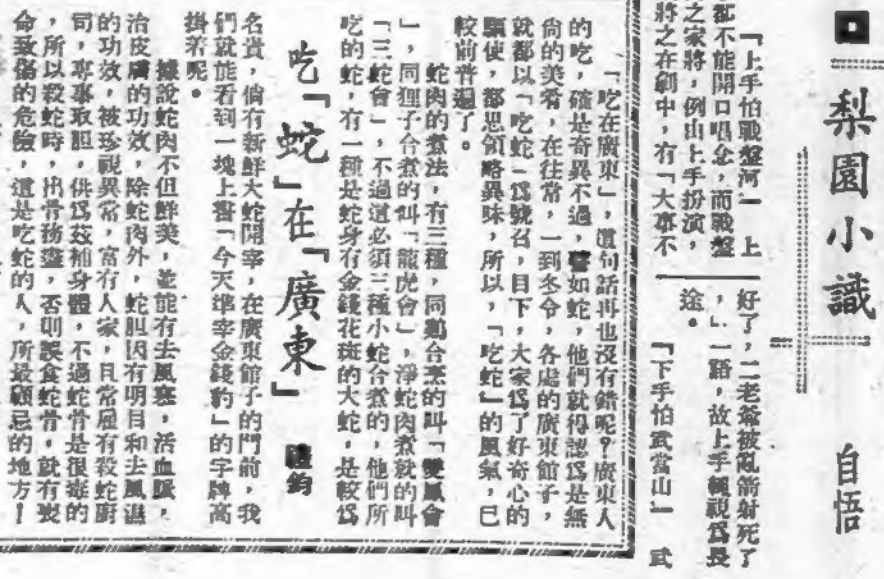 梨園小識
自悟
「上手怕戰盤河」 上
都不能開口唱念，而戰盤
之家將，例由上手扮演，
將之在劇中，有「大事不
好了，二老爺被亂箭射死了
，」一語，故上手輒視爲畏
途。
「下手怕武當山」 武
「吃在廣東」，這句話再也沒有錯呢？廣東人
的吃，確是奇異不過，譬如蛇，他們就得認爲是無
尙的美肴，在往常，一到冬令，各處的廣東館子，
就都以「吃蛇」爲號召，目下，大家爲了好奇心的
驅使，都思領略異味，所以，「吃蛇」的風氣，已
較前普遍了。
蛇肉的煮法，有三種，同鷄合烹的叫「雙鳳會
」，同狸子合煮的叫「龍虎會」，淨蛇肉煮就的叫
「三蛇會」，不過這必須三種小蛇合煮的，他們所
吃的蛇，有一種是蛇身有金錢花斑的大蛇，是較爲
吃「蛇」在「廣東」
鈞
名貴，倘有新鮮大蛇開宰，在廣東館子的門前，我
們就能看到一塊上書「今天準宰金錢豹」的字牌高
掛着呢。
據說蛇肉不但鮮美，並能有去風寒，活血脈，
治皮膚的功效，除蛇肉外，蛇胆因有明目和去風濕
的功效，被珍視異常，富有人家，且常雇有殺蛇廚
司，專事取胆，供爲茲補身體，不過蛇骨是很毒的
，所以殺蛇時，出骨務盡，否則誤食蛇骨，就有喪
命致傷的危險，這是吃蛇的人，所最顧忌的地方！